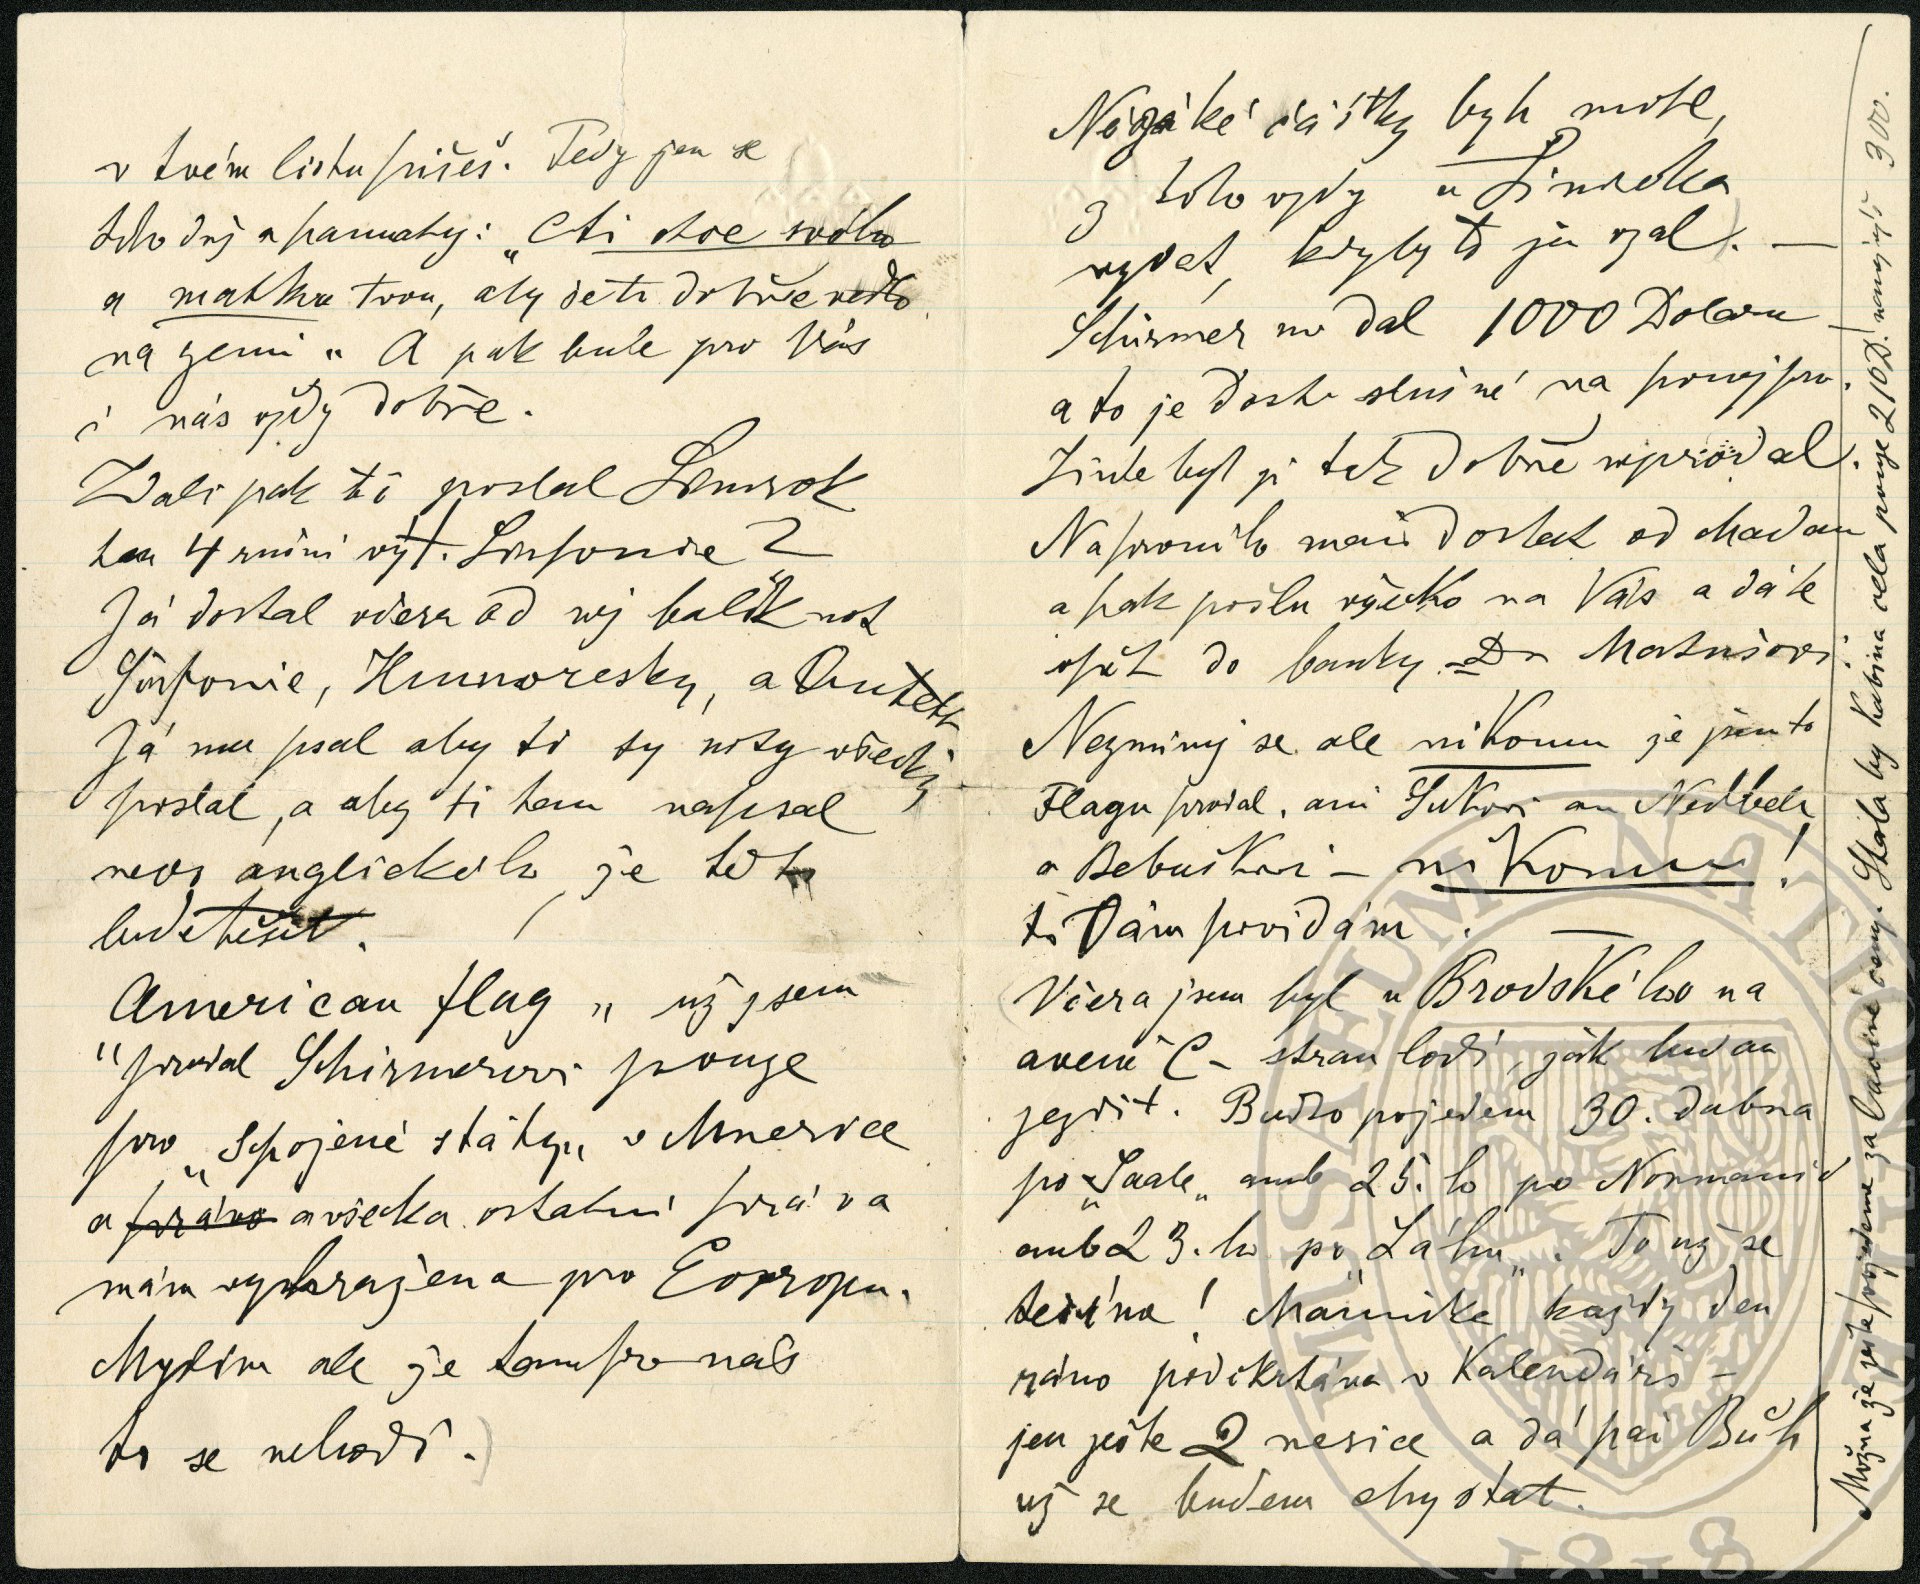 v tvém listu píšeš. Tedy jen se
toho drž a pamatuj: „Cti otce svého
a matku tvou, aby se ti dobře vedlo
na zemi“ A pak bude pro Vás
i nás vždy dobře.
Zdali pak ti poslal Simrok
ten 4 ruční výt. Sinfonie?
Já dostal včera od něj balík not
Sinfonie, Humoresky, a Quintett
Já mu psal aby ti ty noty všecky
poslal, a aby ti tam napsal
neco anglického, že tě to
bude těšit.
American flag “ už jsem
“ prodal Schirmerovi pouze
pro „Spojené státy“ v Americe
a práva a všecka ostatní práva
mám vyhražena pro Evropu.
Myslím ale že tam pro nás
to se nehodí.
Nějaké částky bych mohl,
z toho vždy u Simrocka
vydat, kdyby to jen vzal. —
Schirmer mi dal 1000 Dolaru
a to je dosti slušné na ponejprv.
Jinde bych ji též dobře neprodal.
Napromilo mám dostat od Madam
a pak pošlu všecko na Vás a dáte
opět do banky Dr Matušovi!
Nezmiňuj se ale nikomu že jsem to
Flagu prodal, ani Sukovi ani Nedbalu
a Bebuškovi — nikomu!
to Vám povídám.
Včera jsem byl u Brodského na
avenue C — stran lodi, jak budem
jezdit. Buďto pojedem 30. dubna
po „Saale“ aneb 25.ho po Normanii
aneb 23.ho po „Láhn“. To už se
těšíme! Maminka každý den
ráno podškrtává v Kalendáři —
jen ještě 2 mesice a dá pan Bůh
už se budem chystat.
Možná že ještě pojedeme za lacinější ceny. Stála by kabina celá pouze 210 D! nynější 300.